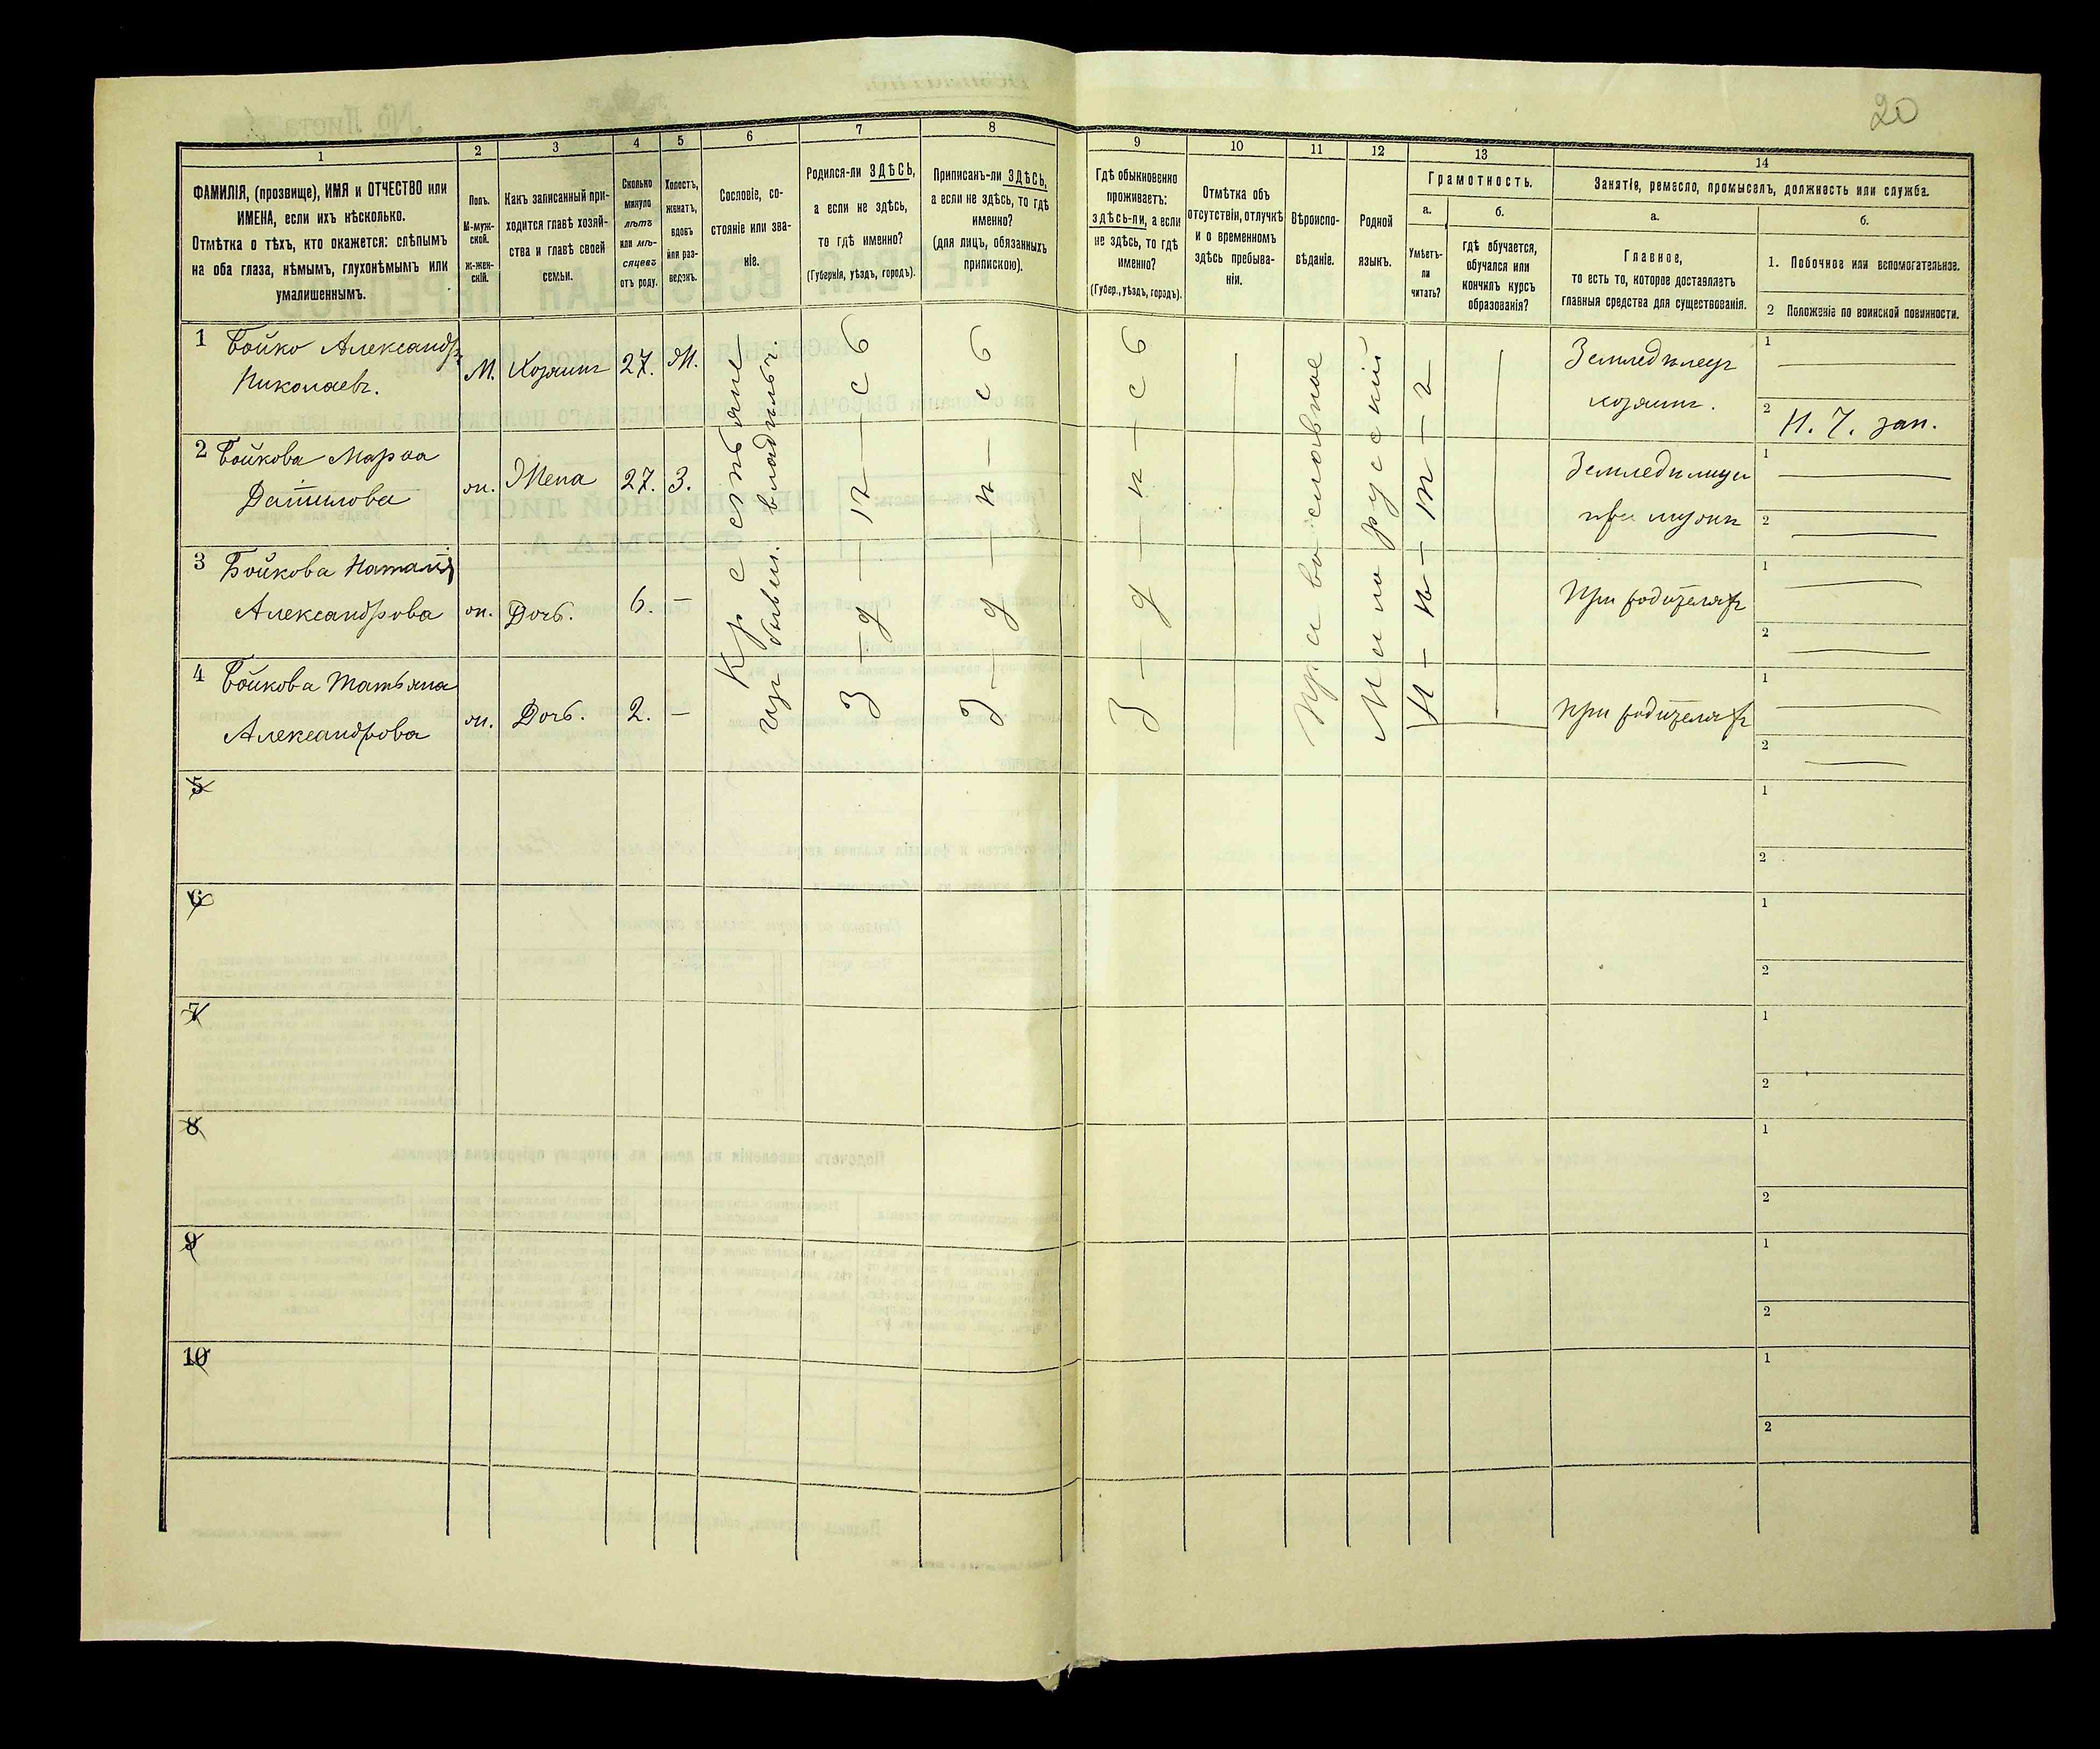 20
1 2 3 4 5 6 7 8 9 10 11 12 13 14
ФАМИЛІЯ, (прозвище), ИМЯ и ОТЧЕСТВО или
ИМЕНА, если ихъ нѣсколько.
Отмѣтка о тѣхъ, кто окажется: слѣпымъ
на оба глаза, нѣмымъ, глухонѣмымъ или
умалишеннымъ.
Полъ.
М-муж-
ской.
Ж-жен-
скій.
Какъ записанный при-
ходится главѣ хозяй-
ства и главѣ своей
семьи.
Сколько
минуло
лѣтъ
или мѣ-
сяцевъ
отъ роду.
Холостъ,
женатъ,
вдовъ
или раз-
веденъ.
Сословіе, со-
стояніе или зва-
ніе.
Родился-ли ЗДѢСЬ,
а если не здѣсь,
то гдѣ именно?
(Губернія, уѣздъ, городъ).
Приписанъ-ли ЗДѢСЬ,
а если не здѣсь, то гдѣ
именно?
(для лицъ, обязанныхъ
припискою).
Гдѣ обыкновенно
проживаетъ:
здѣсь-ли, а если
не здѣсь, то гдѣ
именно?
(Губер., уѣздъ, городъ).
Отмѣтка объ
отсутствіи, отлучкѣ
и о временномъ
здѣсь пребыва-
ніи.
Вѣроиспо-
вѣданіе.
Родной
языкъ.
Грамотность.
а.
Умѣетъ-
ли
читать?
б.
гдѣ обучается,
обучался или
кончилъ курсъ
образованія?
Занятіе, ремесло, промыселъ, должность или служба.
а.
Главное,
то есть то, которое доставляетъ
главныя средства для существованія.
б.
1. Побочное или вспомогательное.
2 Положеніе по воинской повинности.
1 Бойко Александръ
Николаевъ.
М. Хозяинъ 27. Ж.
Землед­ѣлецъ
хозяинъ.
1
2 Н. Ч. зап.
2 Бойкова Марѳа
Данилова
ж. Жена 27. З.
Земледѣлица
при мужѣ
1
2
3 Бойкова Наталія
Александрова
ж. Дочь. 6. –
При родителяхъ
1
2
4 Бойкова Татьяна
Александрова
ж. Дочь. 2. –
При родителяхъ
1
2
Крестьяне
изъ бывш. владѣльч.
З – д – ѣ – с – ь
З – д – ѣ – с – ь
З – д – ѣ – с – ь
Православное
Малорусскій
Н – ѣ – т – ъ
5
1
2
6
1
2
7
1
2
8
1
2
9
1
2
10
1
2